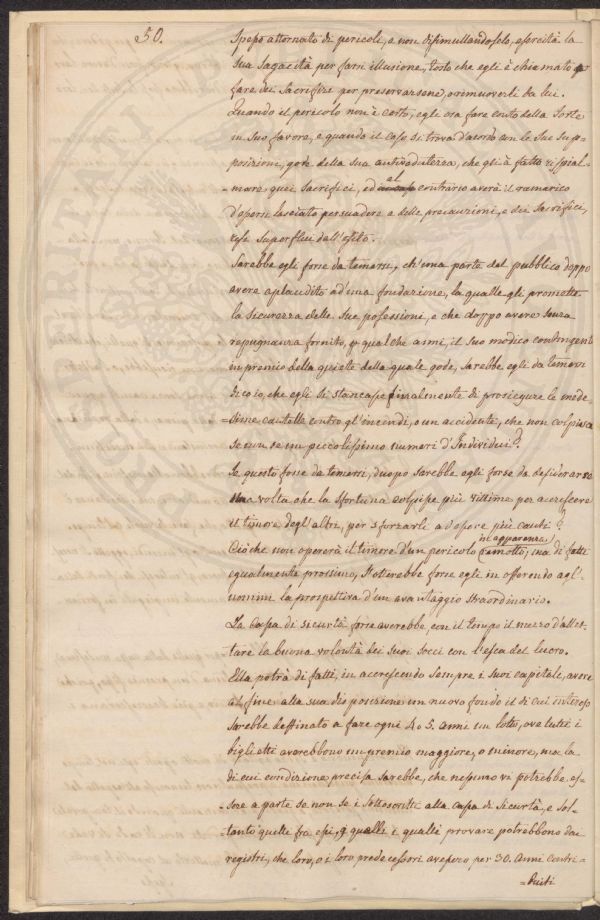 50.
Spesso attornato di pericoli, e non dissimullandoselo, esercità la
sua sagacità per farsi illusione, tosto che egli è chiamato a
fare dei sacrifizi per preservarsene, o rimuoverli da lui.
Quando il pericolo non è certo, egli osa fare conto della sorte
in suo favore, e quando il caso si trova d'acordo con le sue sup=
posizioni, gode della sua antivedutezza, che gli à fatto rispial=
mare quei sacrifici, ed al contrario averà il ramarico
d'essersi lasciato persuadere a delle precauzioni, e dei sacrifici,
resi superflui dall'esito.
Sarebbe egli forse da temersi, ch'una parte del pubblico doppo
avere aplaudito ad'una fondazione, la qualle gli promette
la sicurezza delle sue possessioni, e che doppo avere senza
repugnanza fornito, p qualchi anni, il suo modico contingente
in premio della quiete della quale gode, sarebbe egli da temersi
dico io, che egli si stancasse finalmente di proseguire le mede=
=sime cautelle contro gl'incendi, o un accidente, che non colpisca
se non se un piccolissimo numero d'Individui?
Se questo fosse da temersi, duopo sarebbe egli forse da desiderarse
una volta che la sfortuna colpisse più vittime per acrescere
il timore degl'altri, per sforzarli a d'essere più cauti?
Ciò che non opererà il timore d'un pericolo (in apparenza) remotto, ma di fatti
egualmente prossimo, s'otterebbe forse egli in offerendo agl'
uomini la prospettiva d'un avantaggio straordinario.
La cassa di sicurtà forse averebbe, con il tempo il mezzo d'allet=
tare la buona volontà dei suoi socci con l'esca del lucro.
Ella potrà di fatti, in acrescendo sempre i suoi capitale, avere
al fine alla sua disposizione un nuovo fondo il di cui interesso
sarebbe destinato a fare ogni 4 o 5. anni un lotto, ove tutti i
biglietti averebbono un premio maggiore, o minore, ma la
di cui condizione precisa sarebbe, che nessuno vi potrebbe es=
=sere a parte se non se i sottoscritti alla cassa di sicurtà, e sol=
=tanto quelli fra essi, i qualli provare potrebbono dai
registri, che loro, o i loro predecessori avessero per 30. anni contri=
=buiti